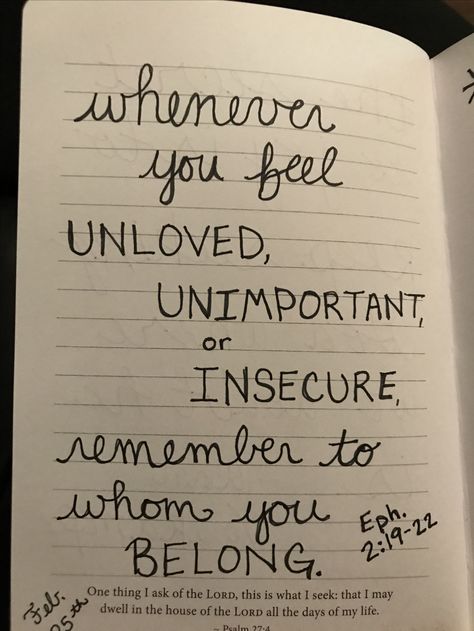 whenever
you feel
UNLOVED,
UNIMPORTANT,
or
INSECURE,
remember to
whom you
BELONG.
Eph.
2:19-22
Feb.
25th
One thing I ask of the LORD, this is what I seek: that I may
dwell in the house of the LORD all the days of my life.
~ Psalm 27:4